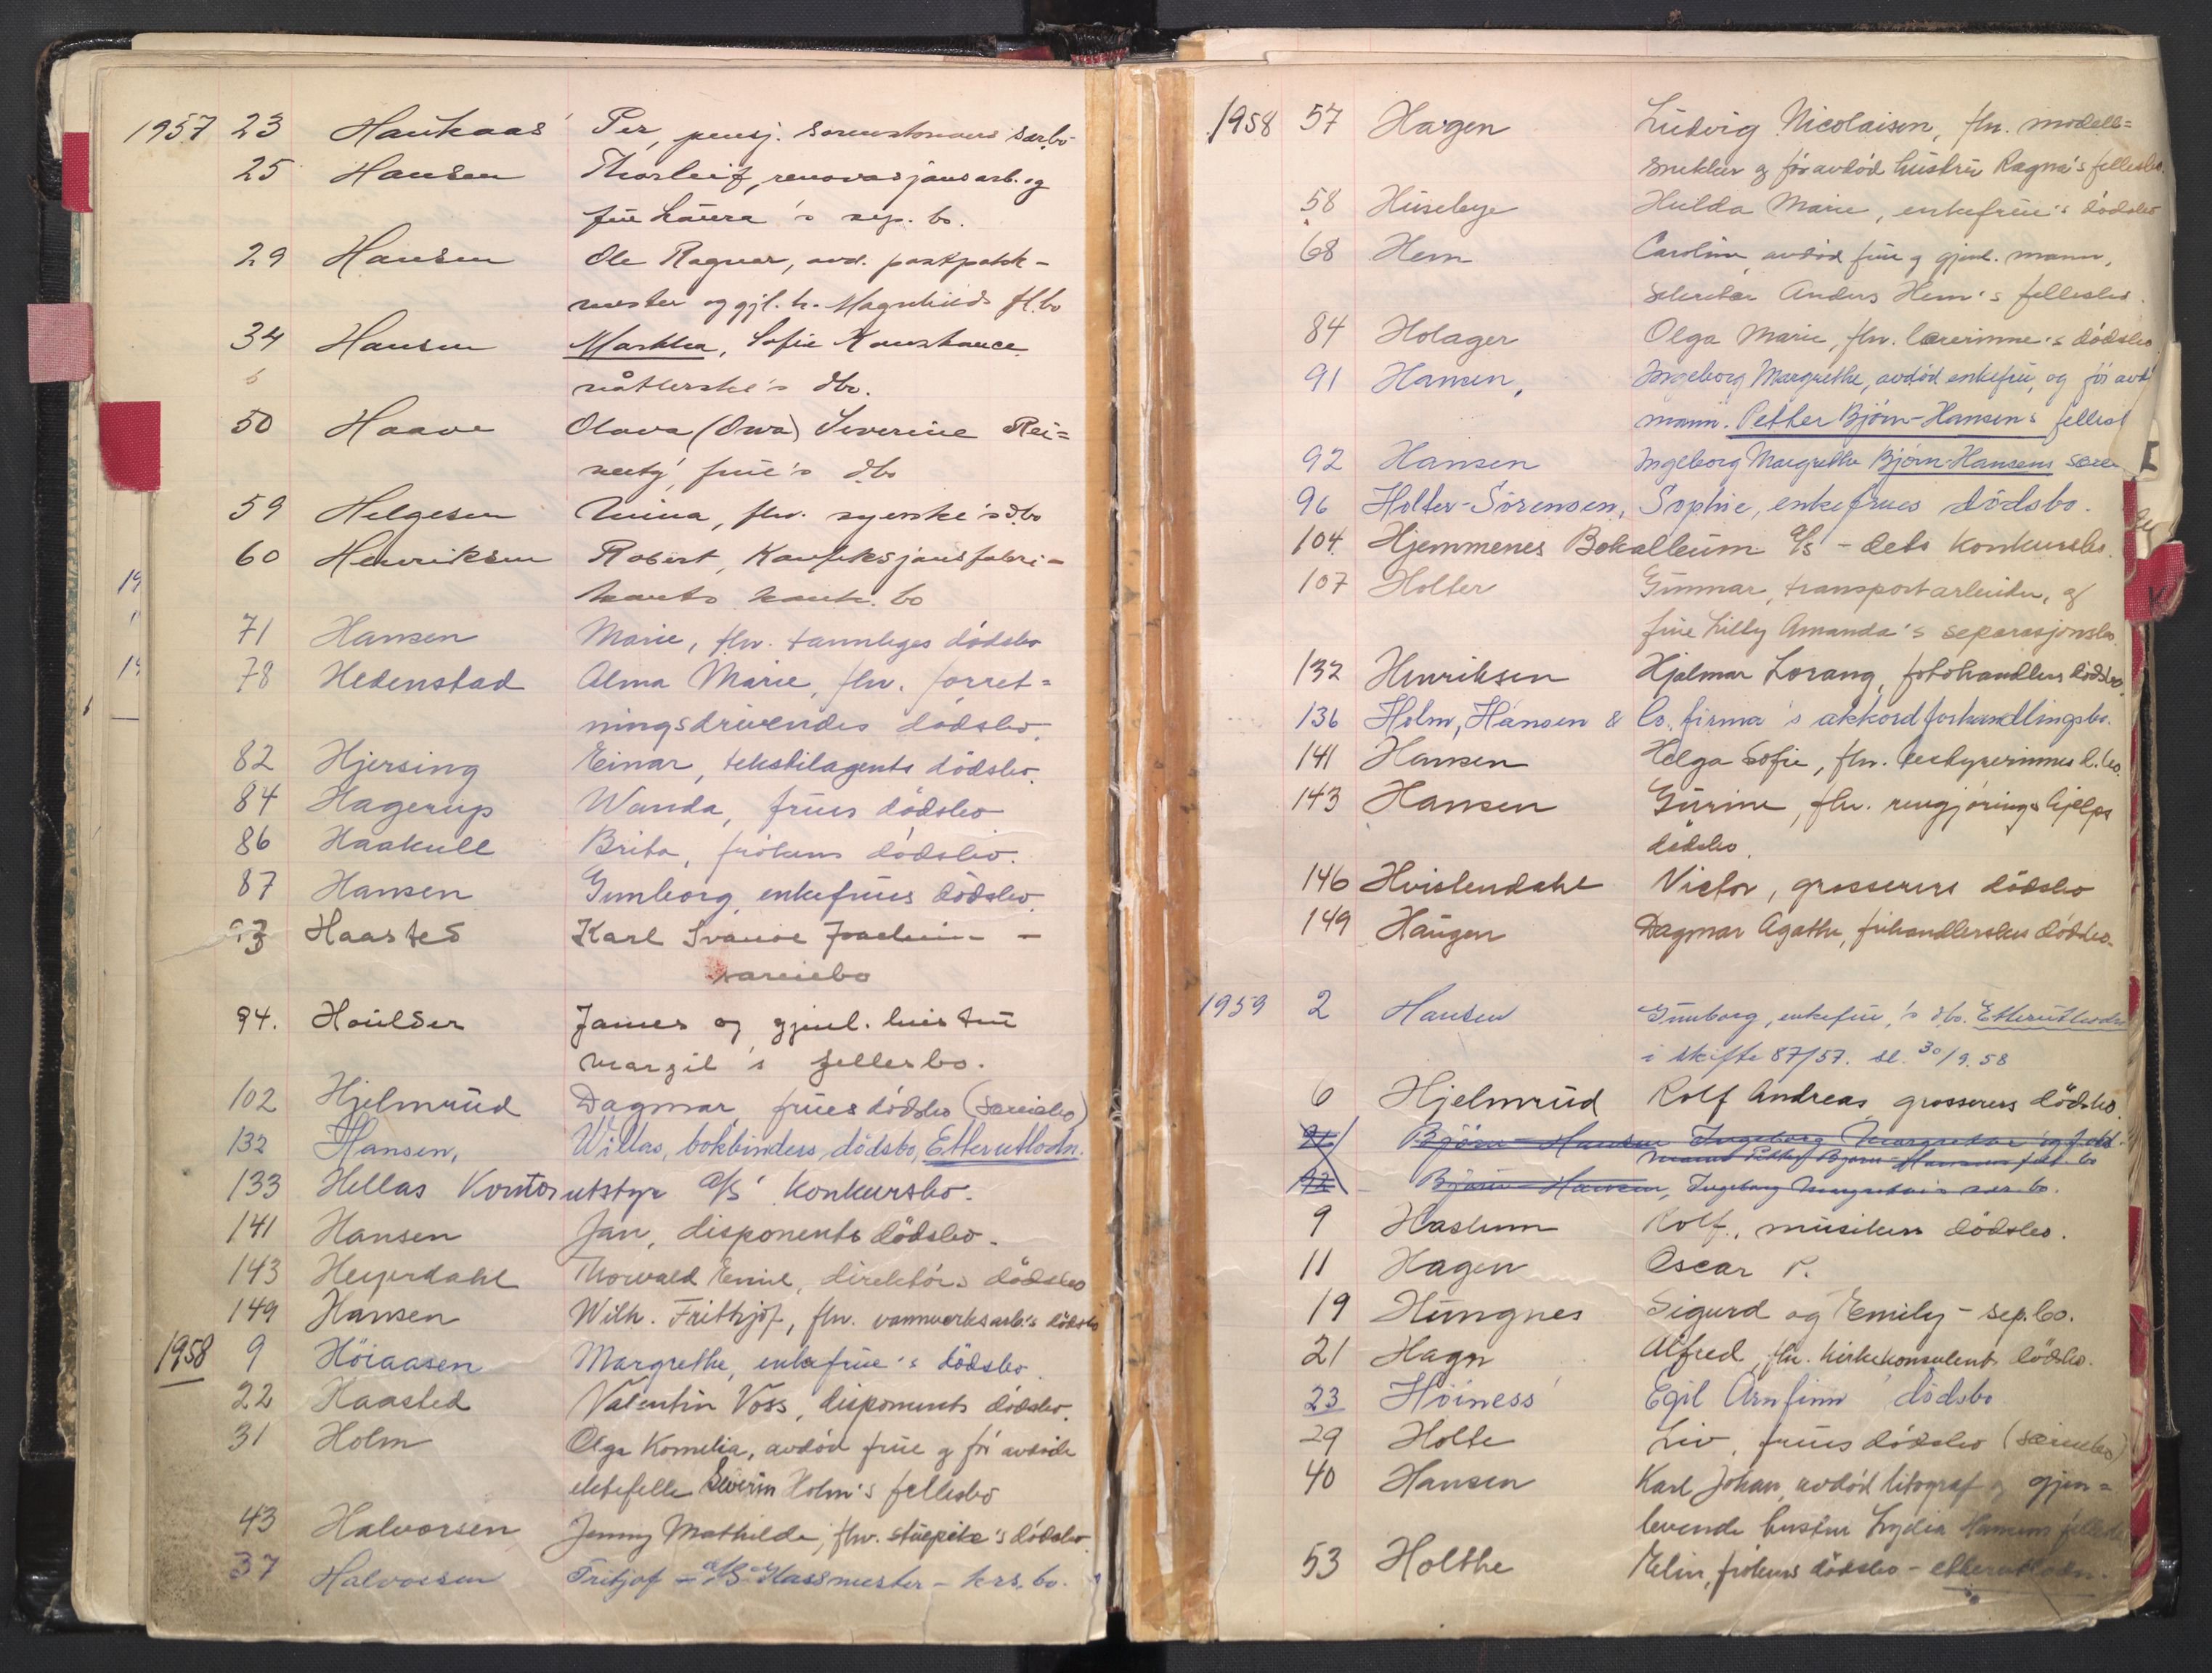 1957 23 Haukaas Per, pensj. særbo
25 Hansen Thorleif, renovasjonsarb. og
frue Laura's sep. bo.
29 Hansen Ole Ragnar, avd. postpakk-
mester og gjl. h. Magnhild's fl.bo
34 Hansen Martha, Sofie Konstance
nåtlerske's dbo.
50 Haave Olava (Owa) Severine Rei=
nerty, frue's dbo
59 Helgesen Anna, fhv. syerske's dbo
60 Henriksen Robert, Konfeksjonsfabri-
kants konk. bo
71 Hansen Marie, fhv. tannleges dödsbo
78 Hedenstad Alma Marie, fhv. forret=
ningsdrivendes dödsbo.
82 Hjersing Einar, tekstilagents dödsbo.
84 Hagerup Wanda, frues dödsbo
86 Haakull Brita, frökens dödsbo.
87 Hansen Gunborg, enkefrues dödsbo.
93 Haasted Karl Svanøe Joachim -
særeiebo
94. Houlder James og gjenl. hustru
Margit's fellesbo.
102 Hjelmrud Dagmar, frues dödsbo (særeiebo)
132 Hansen, Willas, bokbinders, dödsbo, Etterutlodn.
133 Hellas Kontorutstyr A/S' Konkursbo.
141 Hansen Jan, disponents dödsbo.
143 Heyerdahl Thorvald Emil, direktör's dödsbo
149 Hansen Wilh. Frithjof, fhv. vannverksarb.'s dödsbo
1958 9 Höiaasen Margrethe, enkefrue's dödsbo.
22 Haasted Valentin Voss, disponents dödsbo.
31 Holm Olga Kornelia, avdöd frue og för avdöde
ektefelle Severin Holm's fellesbo
43 Halvorsen Jenny Mathilde, fhv. stuepike's dödsbo.
37 Halvorsen Fritjof - A/S Glassmester - krs. bo.
1958 57 Hagen Ludvig Nicolaisen, fhv. modell=
snekker og för avdöd hustru Ragna's fellesbo.
58 Huseby Hulda Marie, enkefrue's dödsbo
68 Hem Caroline, avdöd frue og gjenl. mann,
Sekretær Anders Hem's fellesbo.
84 Holager Olga Marie, fhv. lærerinne's dödsbo
91 Hansen, Ingeborg Margrethe, avdöd enkefru, og för avd
mann. Petter Björn-Hansen's felles
92 Hansen Ingeborg Margrethe Björn-Hansens sære
96 Holter-Sörensen, Sophie, enkefrues dödsbo.
104. Hjemmenes Bokalleum A/S - dets konkursbo.
107 Holter Gunnar, transportarbeider, og
frue Lilly Amanda's separasjonsbo
132 Henriksen Hjalmar Lorang, fotohandlers dödsbo.
136 Holm, Hansen & Co. firma's akkordforhandlingsbo.
141 Hansen Helga Sofie, fhv. bestyrerinnes d.bo.
143 Hansen Gurine, fhv. rengjörings hjelps
dödsbo.
146 Hvistendahl Victor, grosserers dödsbo
149 Haugen Dagmar Agathe, fruhandlerskes dödsbo.
1959 2 Hansen Gunborg, enkefrue,'s dbo. Etterutlodn
i skifte 87/57. sl. 30/9.58
6 Hjelmrud Rolf Andreas, grosserers dödsbo.
91 Björn-Hansen Ingeborg Margrethe og f. dd.
mann Petter Bjørn-Hansens fel. bo
92 Björn-Hansen, Ingeborg Margrethe's sær. bo.
9 Haslum Rolf, musikers dödsbo.
11 Hagen Oscar P.
19 Hungnes Sigurd og Emily - sep.bo.
21 Hagn Alfred, fhv. kirkekonsulents dödsbo.
23 Höiness Egil Arnfinn dödsbo
29 Holte Liv, frues dödsbo (særeiebo)
40 Hansen Karl Johan, avdöd litograf og gjen=
levende hustru Lydia Hansens fellesbo
53 Holthe Elin, frökens dödsbo - etterutlodn.